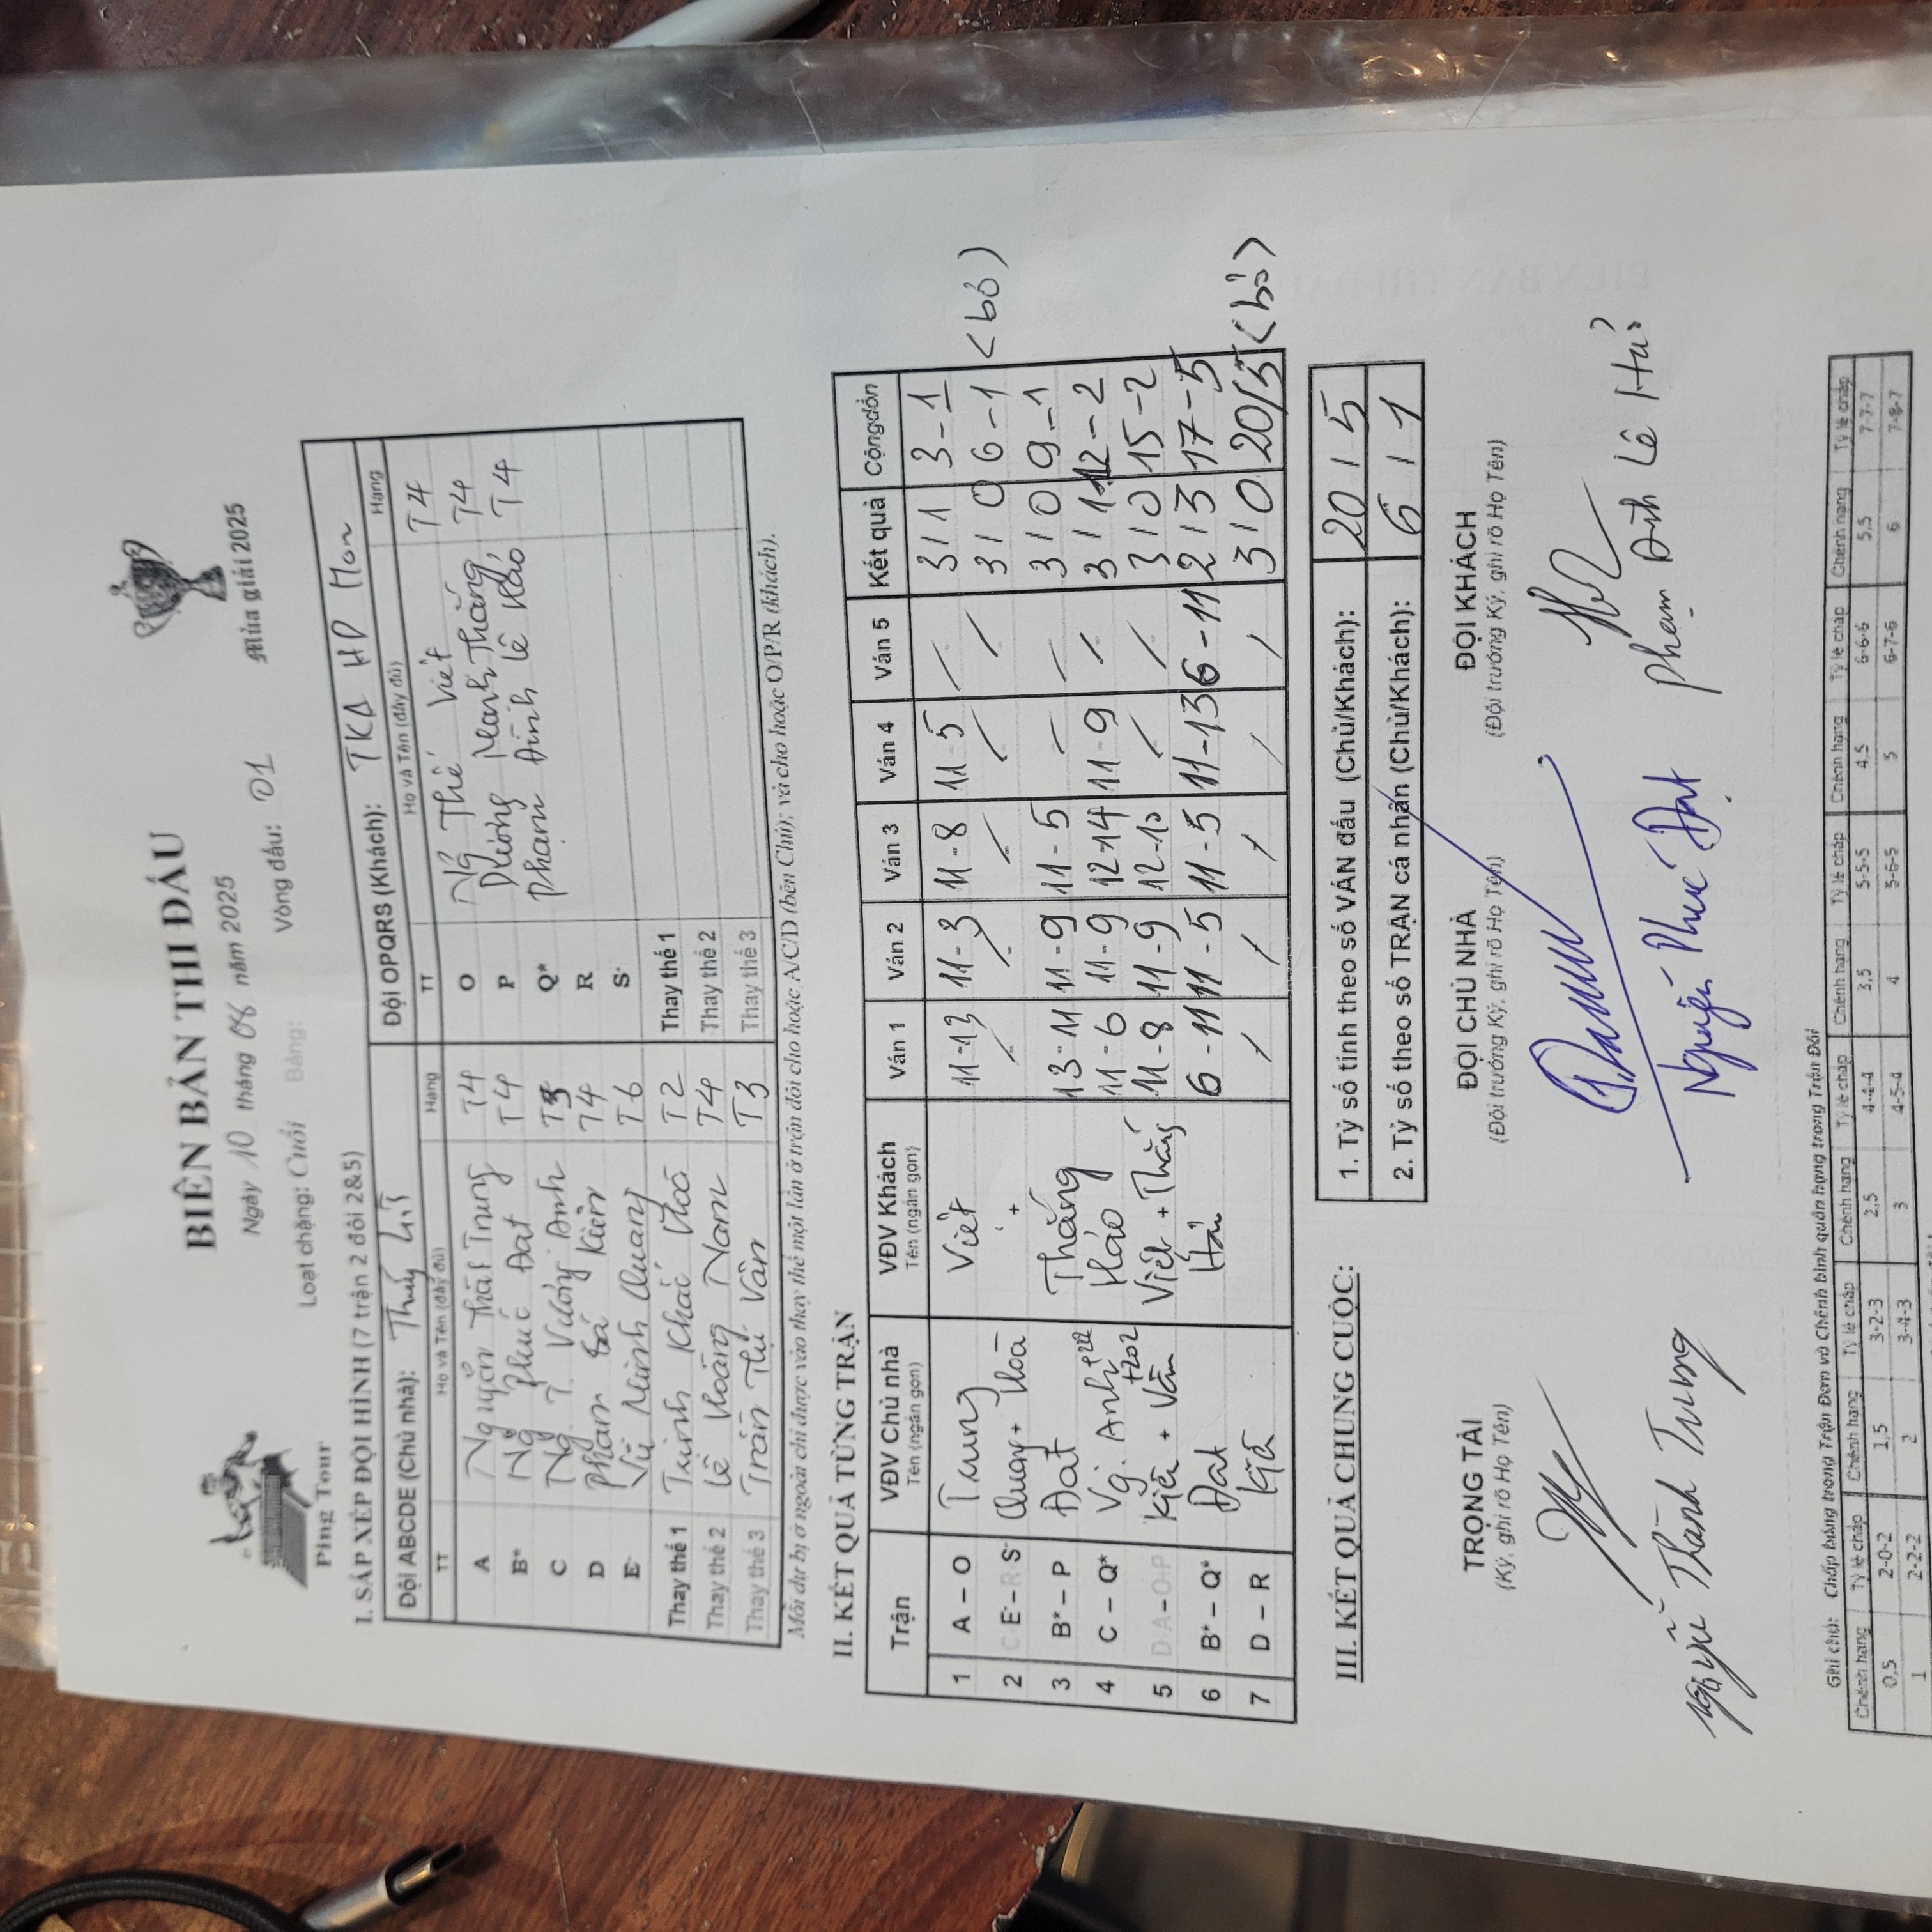 BIÊN BẢN THI ĐẤU
Ngày 10 tháng 08 năm 2025
Ping Tour
Mùa giải 2025
Loạt chặng: Cuối Bảng: Vòng đấu: 01
I. SẮP XẾP ĐỘI HÌNH (7 trận 2 đôi 2&5)
Đội ABCDE (Chủ nhà): Thuỷ Đội OPQRS (Khách): TKA HD Mon
TT Họ và Tên (đầy đủ) Hạng TT Họ và Tên (đầy đủ) Hạng
A Nguyễn Thái Trung T4 O Ng Thế Việt T4
B* Ng Phúc Đạt T4 P Dương Mạnh Thắng T4
C Ng T. Vương Anh T3 Q* Phạm Đình Lê Hảo T4
D Phạm Bá Kiên T4 R
E- Vũ Minh Quang T6 S-
Thay thế 1 Trịnh Khắc Hoà T2 Thay thế 1
Thay thế 2 Lê Hoàng Nam T4 Thay thế 2
Thay thế 3 Trần Thị Vân T3 Thay thế 3
Mỗi dự bị ở ngoài chỉ được vào thay thế một lần ở trận đôi cho hoặc A/C/D (bên Chủ); và cho hoặc O/P/R (khách).
II. KẾT QUẢ TỪNG TRẬN
Trận VĐV Chủ nhà Tên (ngắn gọn) VĐV Khách Tên (ngắn gọn) Ván 1 Ván 2 Ván 3 Ván 4 Ván 5 Kết quả Cộng dồn
1 A – O Trung Việt 11-13 11-3 11-8 11-5 / 3/1 3-1
2 C E- – R S- Quang + Hoà + / / / / / 3/0 6-1 <bỏ)
3 B* – P Đạt Thắng 13-11 11-9 11-5 / / 3/0 9-1
4 C – Q* Vg. Anh Hảo 11-6 11-9 12-14 11-9 / 3/1 12-2
5 D A – O P Kiên + Vân Việt + Thắng 11-8 11-9 12-10 / / 3/0 15-2
6 B* – Q* Đạt Hảo 6-11 11-5 11-5 11-13 6-11 2/3 17-5
7 D – R Kiên / / / / / 3/0 20/5 <bỏ>
III. KẾT QUẢ CHUNG CUỘC:
1. Tỷ số tính theo số VÁN đấu (Chủ/Khách): 20/5
2. Tỷ số theo số TRẬN cá nhân (Chủ/Khách): 6/1
TRỌNG TÀI ĐỘI CHỦ NHÀ ĐỘI KHÁCH
(Ký, ghi rõ Họ Tên) (Đội trưởng Ký, ghi rõ Họ Tên) (Đội trưởng Ký, ghi rõ Họ Tên)
Nguyễn Thành Trung Nguyễn Phúc Đạt Phạm Đình Lê Hảo
Ghi chú: Chấp bóng trong Trận Đơn và Chênh bình quân hạng trong Trận Đôi
Chênh hạng Tỷ lệ chấp Chênh hạng Tỷ lệ chấp Chênh hạng Tỷ lệ chấp Chênh hạng Tỷ lệ chấp Chênh hạng Tỷ lệ chấp Chênh hạng Tỷ lệ chấp
0,5 2-0-2 1,5 3-2-3 2,5 4-4-4 3,5 5-5-5 4,5 6-6-6 5,5 7-7-7
1 2-2-2 2 3-4-3 3 4-5-4 4 5-6-5 5 6-7-6 6 7-8-7